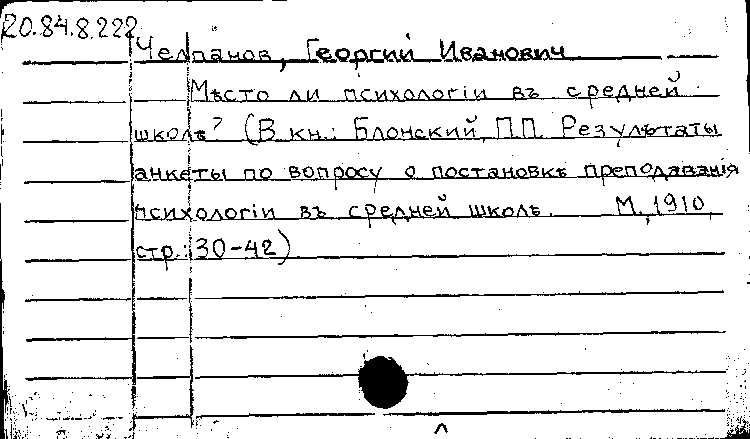 20.84.8.222
Челпанов, Георгий Иванович
Мѣсто ли психологіи въ средней
школѣ? (В кн.: Блонский, П.П. Результаты
анкеты по вопросу о постановкѣ преподаванія
психологіи въ средней школѣ. М., 1910,
стр.: 30-42)